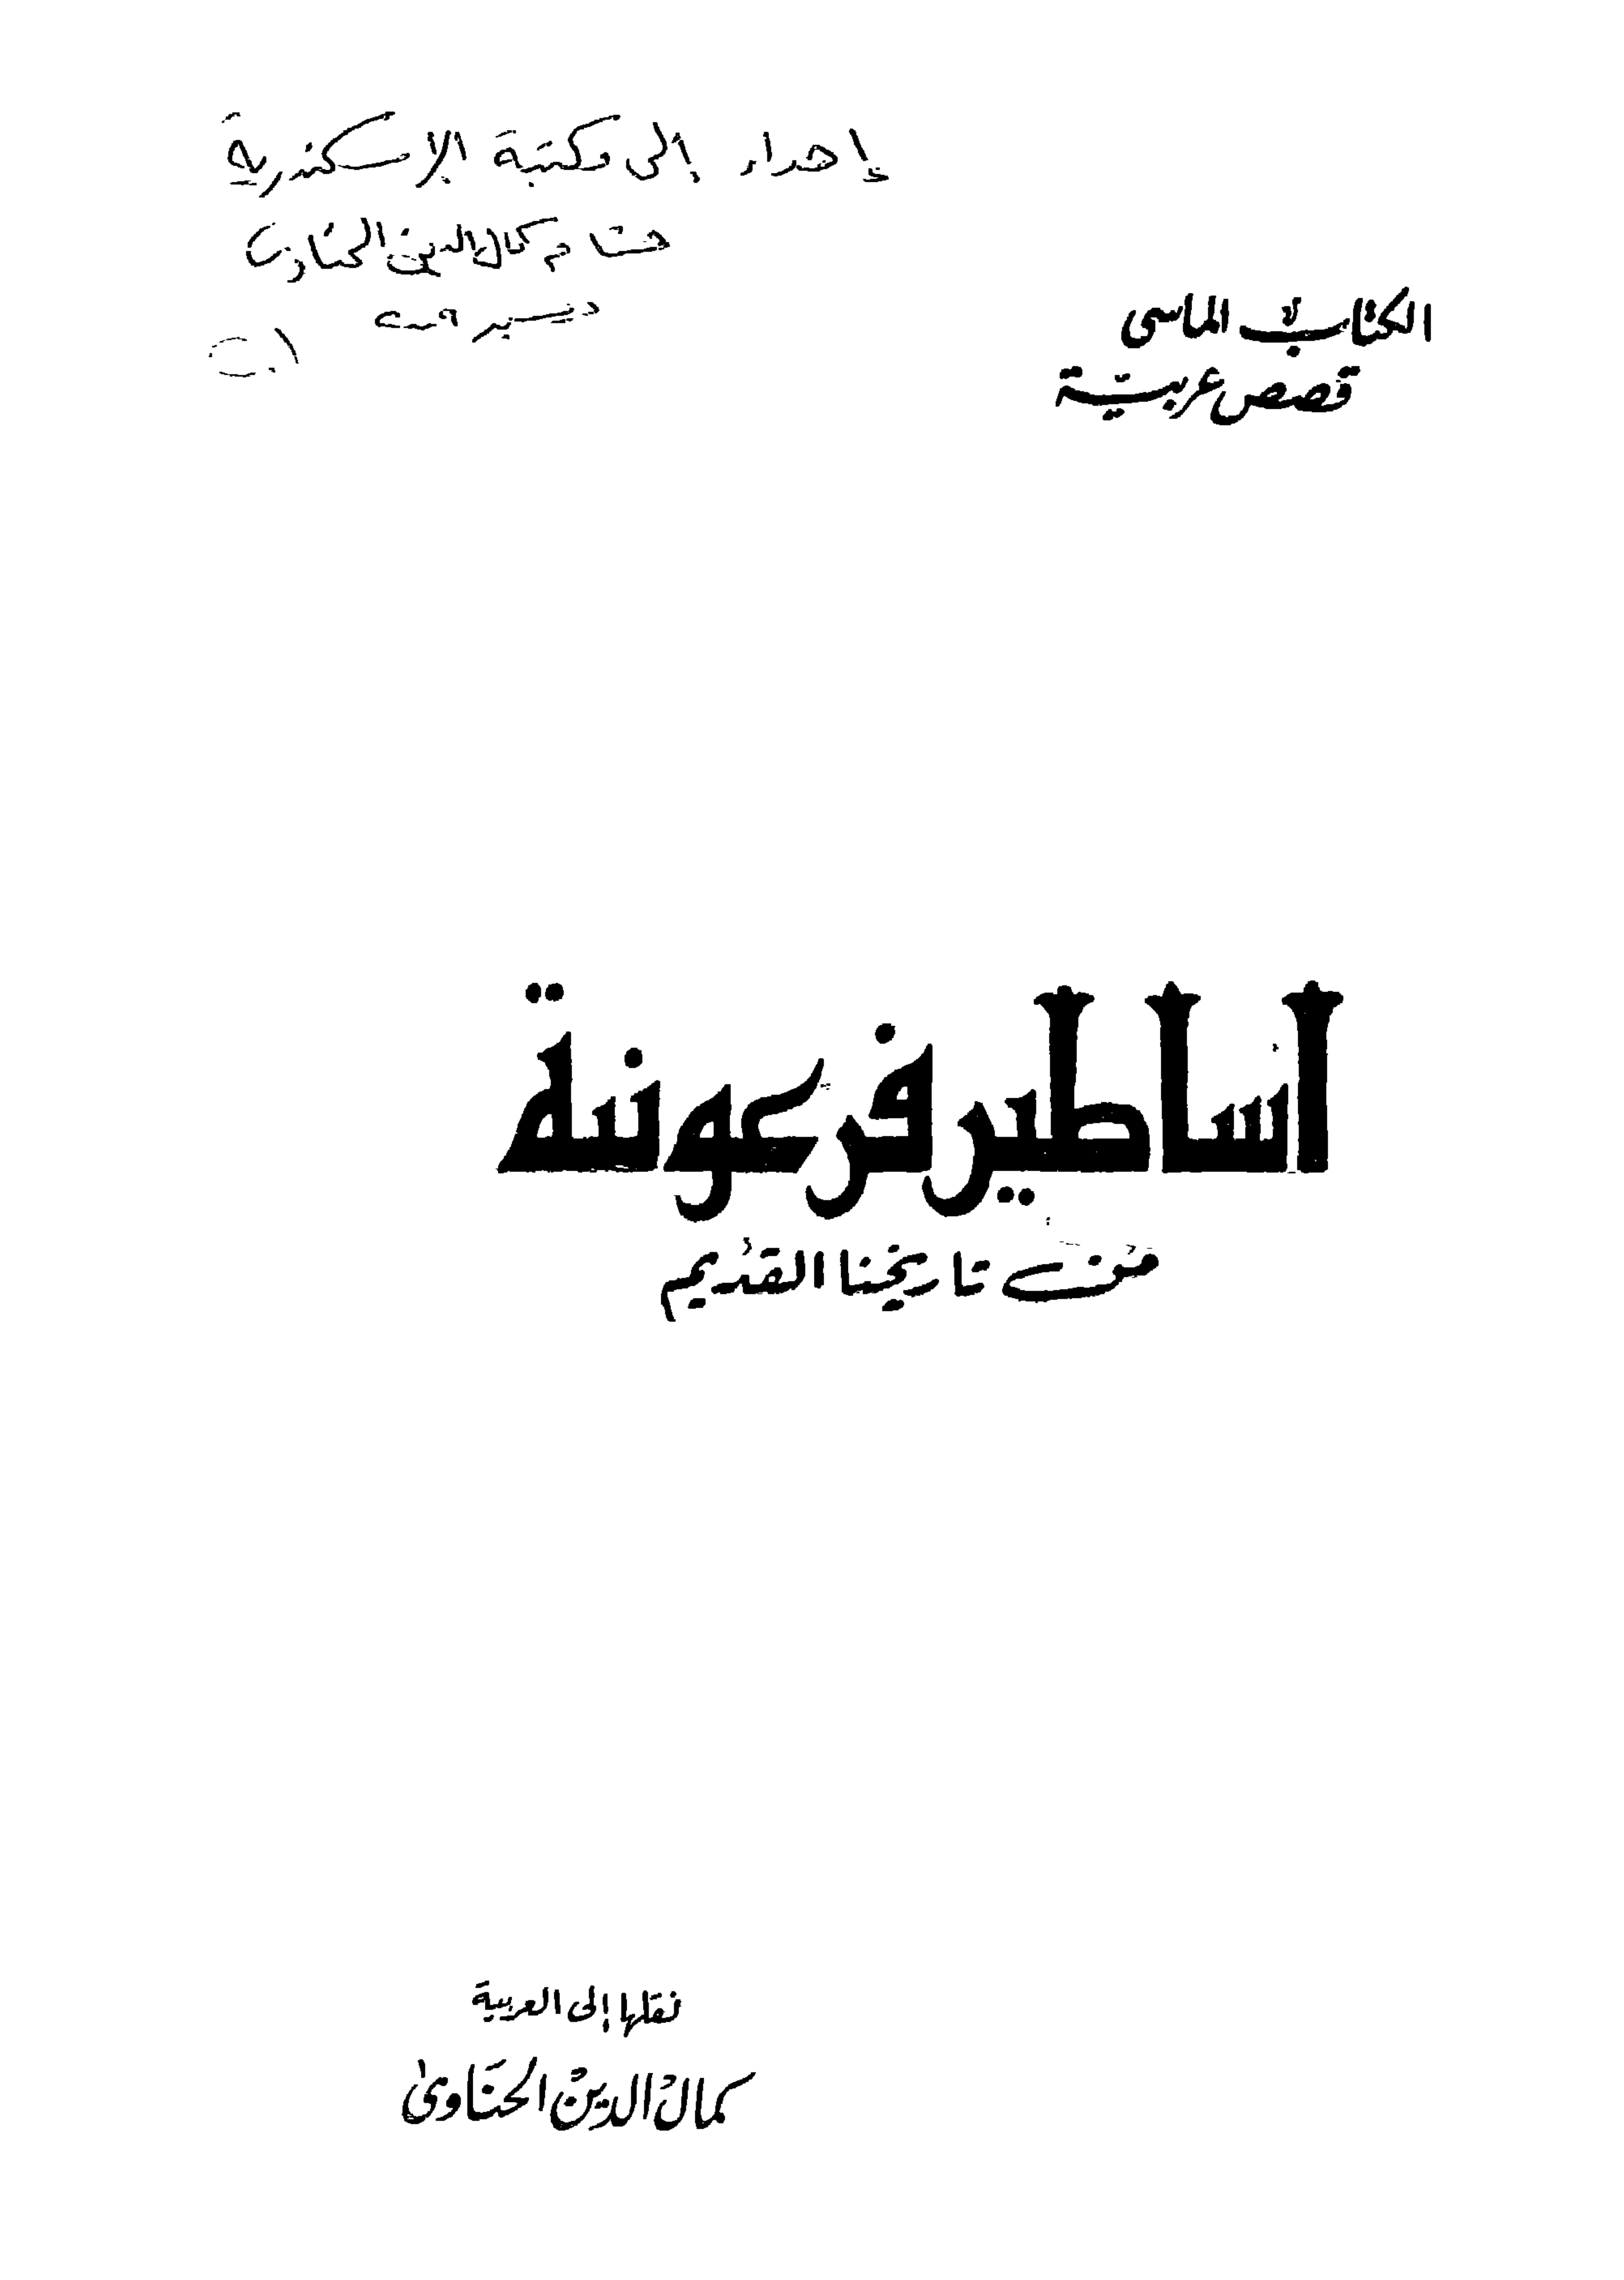 إهداء إلى مكتبة الإسكندرية
هشام كمال الدين الحناوى
ديسمبر ٢٠٠٩
الكتاب الماسى
قصص عربية
أساطير فرعونية
من تاريخنا القديم
نقلها إلى العربية
كمال الدين الحناوى